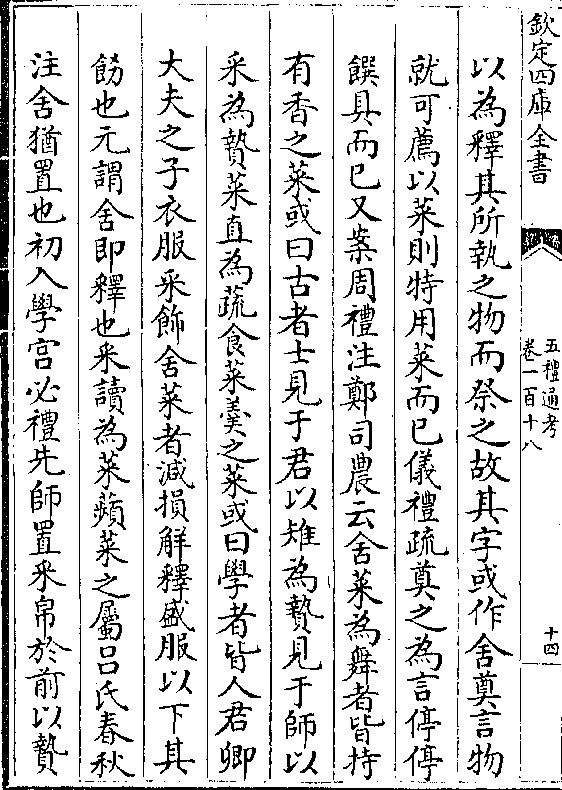 欽定四庫全書
五禮通考
卷一百十八
十四
以為釋其所執之物而祭之故其字或作舍奠言物
就可薦以菜則特用菜而已儀禮疏奠之為言停停
饌具而已又案周禮注鄭司農云舍菜為舞者皆持
有香之菜或曰古者士見于君以雉為贄見于師以
采為贄菜直為蔬食菜羹之菜或曰學者皆人君卿
大夫之子衣服采飾舍菜者減損解釋盛服以下其
飭也元謂舍即釋也采讀為菜蘋菜之屬吕氏春秋
注舍猶置也初入學宫必禮先師置采帛於前以贄